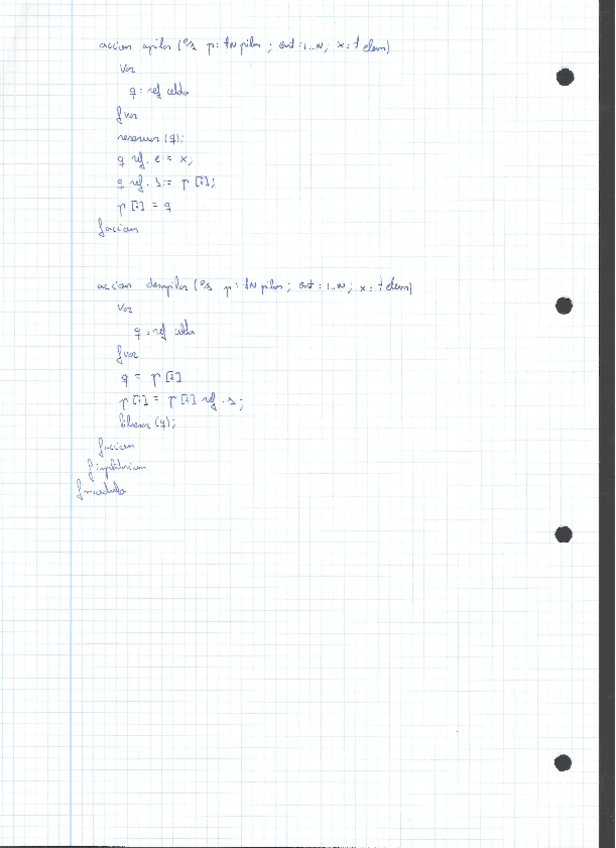 accion apilar (e/s p: tNpilas; ent: 1..N; x: telem)
var
q: ref celda
fvar
reservar (q);
q ref. e := x;
q ref. s := p [i];
p [i] = q
faccion
accion desapilar (e/s p: tNpilas; ent: 1..N; x: telem)
var
q: ref celda
fvar
q = p [i]
p [i] = p [i] ref. s;
liberar (q);
faccion
fimplementacion
fmodulo